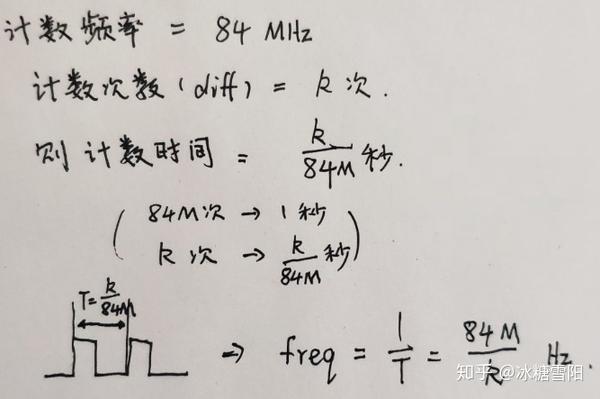 计数频率 = 84 MHz
计数次数(diff) = k 次.
则 计数时间 = k/84M 秒.
(84M次 → 1秒
k 次 → k/84M 秒)
T=k/84M
⇒ freq = 1/T = 84M/k Hz.
知乎 @冰糖雪阳